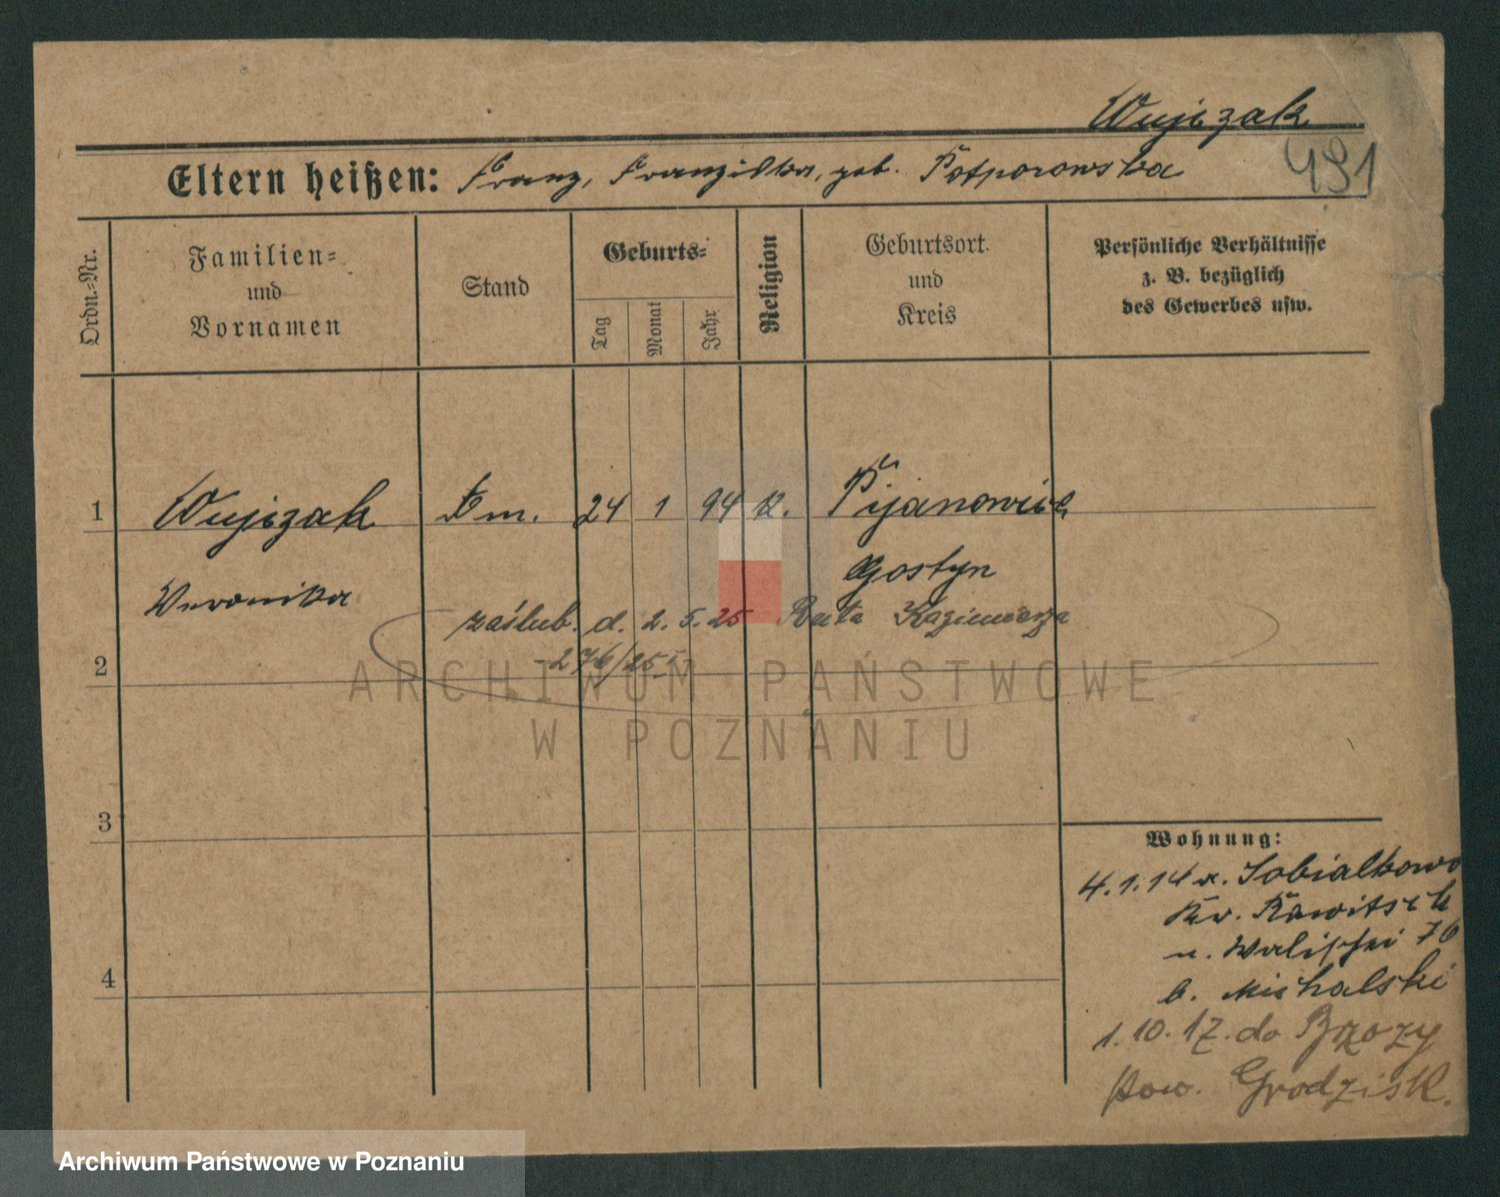 Wujczak
491
Eltern heißen: Franz, Franziska, geb. Potporowska
Ordn.-Nr.
Familien-
und
Vornamen
Stand
Geburts-
Tag
Monat
Jahr
Religion
Geburtsort
und
Kreis
Persönliche Verhältnisse
z. B. bezüglich
des Gewerbes usw.
1 Wujczak Dm. 24 1 94 k. Pijanowice
Gostyn
Weronika
zaślub. d. 2. 5. 25 Ruta Kazimierza
276/25
2
3
4
Wohnung:
4.1.14 v. Sobialkowo
Kr. Rawitsch
n. Walischei 76
b. Michalski
1.10.17. do Brzozy
pow. Grodzisk.
ARCHIWUM PAŃSTWOWE
W POZNANIU
Archiwum Państwowe w Poznaniu